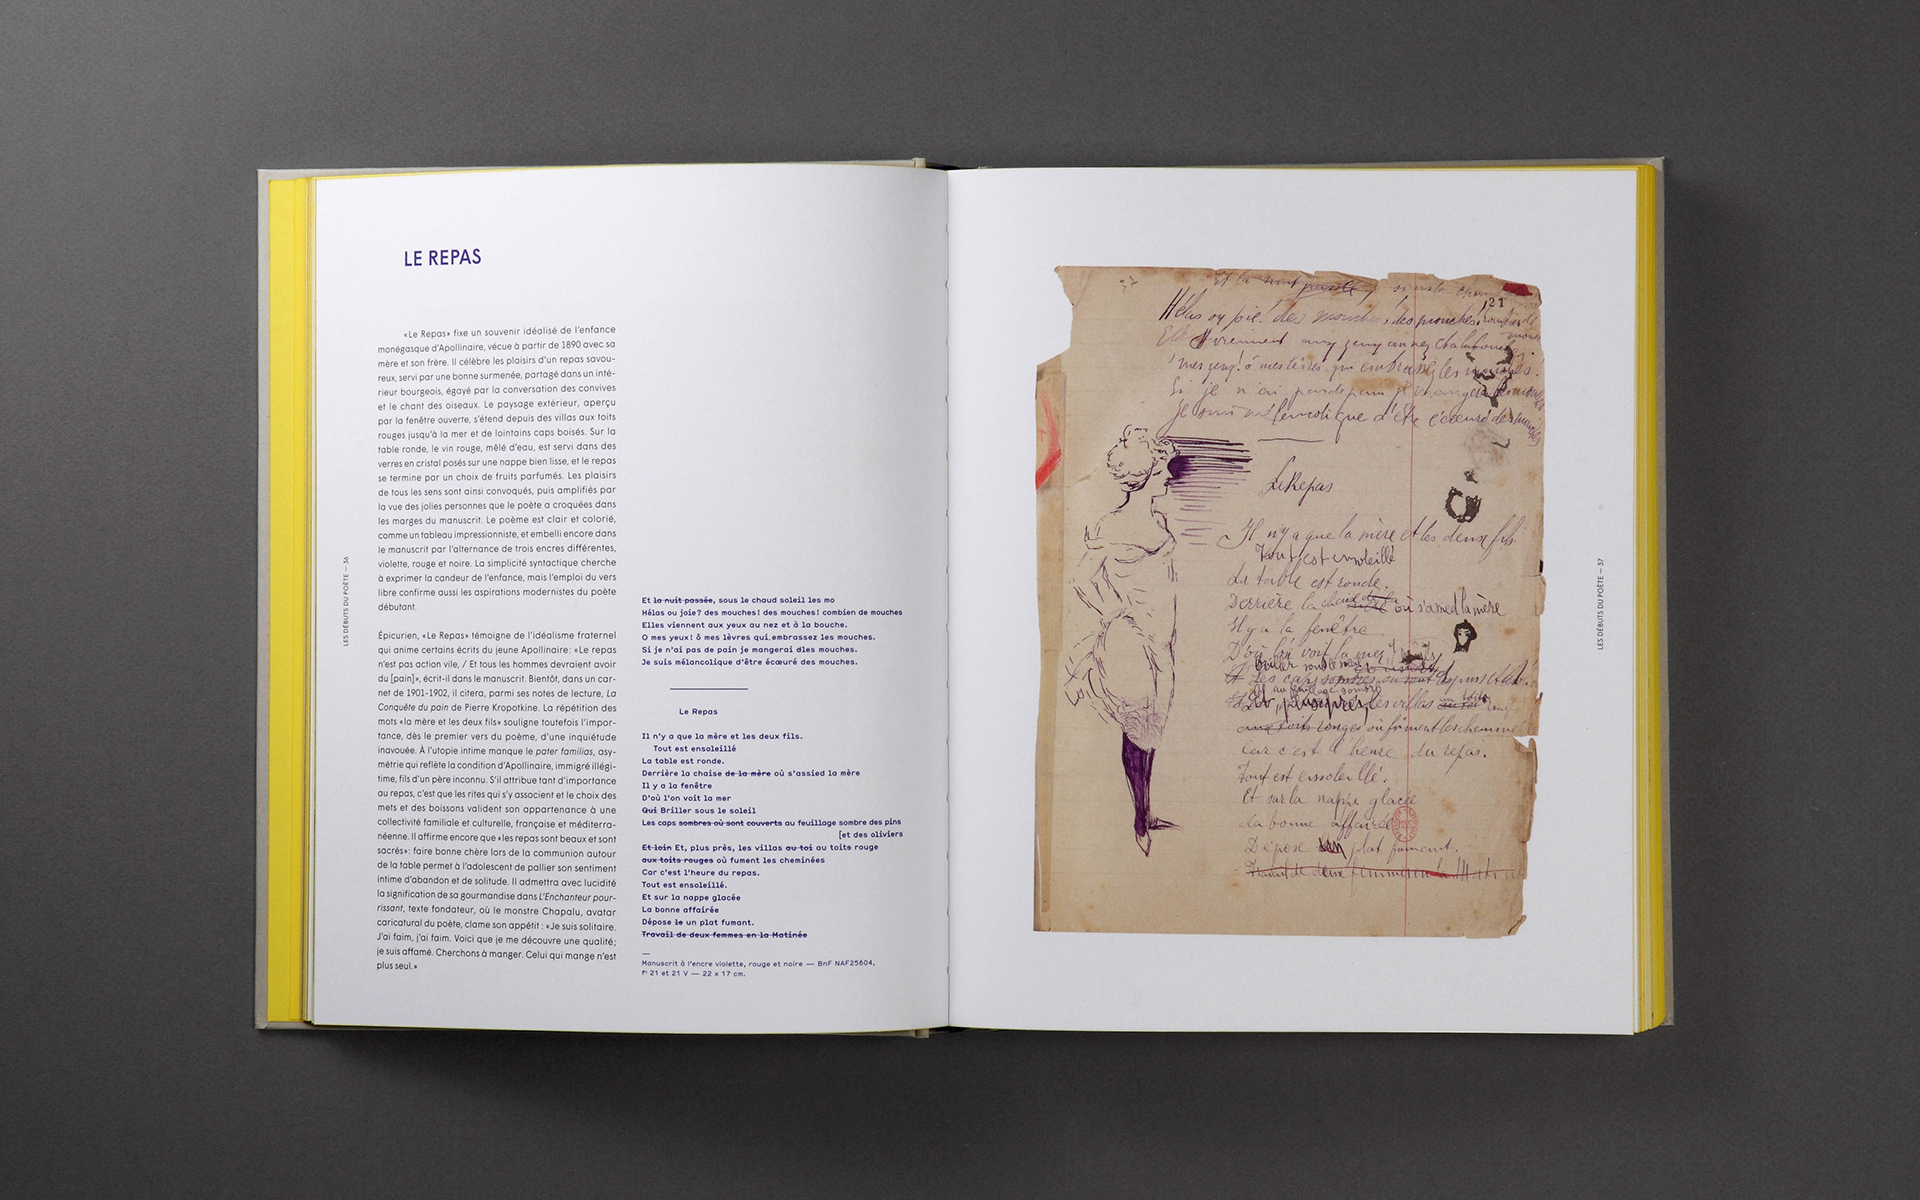 LE REPAS
«Le Repas» fixe un souvenir idéalisé de l'enfance
monégasque d'Apollinaire, vécue à partir de 1890 avec sa
mère et son frère. Il célèbre les plaisirs d'un repas savou-
reux, servi par une bonne surmenée, partagé dans un inté-
rieur bourgeois, égayé par la conversation des convives
et le chant des oiseaux. Le paysage extérieur, aperçu
par la fenêtre ouverte, s'étend depuis des villas aux toits
rouges jusqu'à la mer et de lointains caps boisés. Sur la
table ronde, le vin rouge, mêlé d'eau, est servi dans des
verres en cristal posés sur une nappe bien lisse, et le repas
se termine par un choix de fruits parfumés. Les plaisirs
de tous les sens sont ainsi convoqués, puis amplifiés par
la vue des jolies personnes que le poète a croquées dans
les marges du manuscrit. Le poème est clair et colorié,
comme un tableau impressionniste, et embelli encore dans
le manuscrit par l'alternance de trois encres différentes,
violette, rouge et noire. La simplicité syntactique cherche
à exprimer la candeur de l'enfance, mais l'emploi du vers
libre confirme aussi les aspirations modernistes du poète
débutant.
Épicurien, «Le Repas» témoigne de l'idéalisme fraternel
qui anime certains écrits du jeune Apollinaire: «Le repas
n'est pas action vile, / Et tous les hommes devraient avoir
du [pain]», écrit-il dans le manuscrit. Bientôt, dans un car-
net de 1901-1902, il citera, parmi ses notes de lecture, La
Conquête du pain de Pierre Kropotkine. La répétition des
mots «la mère et les deux fils» souligne toutefois l'impor-
tance, dès le premier vers du poème, d'une inquiétude
inavouée. À l'utopie intime manque le pater familias, asy-
métrie qui reflète la condition d'Apollinaire, immigré illégi-
time, fils d'un père inconnu. S'il attribue tant d'importance
au repas, c'est que les rites qui s'y associent et le choix des
mets et des boissons valident son appartenance à une
collectivité familiale et culturelle, française et méditerra-
néenne. Il affirme encore que «les repas sont beaux et sont
sacrés»: faire bonne chère lors de la communion autour
de la table permet à l'adolescent de pallier son sentiment
intime d'abandon et de solitude. Il admettra avec lucidité
la signification de sa gourmandise dans L'Enchanteur pour-
rissant, texte fondateur, où le monstre Chapalu, avatar
caricatural du poète, clame son appétit : «Je suis solitaire.
J'ai faim, j'ai faim. Voici que je me découvre une qualité;
je suis affamé. Cherchons à manger. Celui qui mange n'est
plus seul.»
LES DÉBUTS DU POÈTE — 36
Et la nuit passée, sous le chaud soleil les mo
Hélas ou joie? des mouches! des mouches! combien de mouches
Elles viennent aux yeux au nez et à la bouche.
O mes yeux! ô mes lèvres qui embrassez les mouches.
Si je n'ai pas de pain je mangerai dles mouches.
Je suis mélancolique d'être écœuré des mouches.
Le Repas
Il n'y a que la mère et les deux fils.
Tout est ensoleillé
La table est ronde.
Derrière la chaise de la mère où s'assied la mère
Il y a la fenêtre
D'où l'on voit la mer
Qui Briller sous le soleil
Les caps sombres où sont couverts au feuillage sombre des pins
[et des oliviers
Et loin Et, plus près, les villas au toi au toits rouge
aux toits rouges où fument les cheminées
Car c'est l'heure du repas.
Tout est ensoleillé.
Et sur la nappe glacée
La bonne affairée
Dépose le un plat fumant.
Travail de deux femmes en la Matinée
—
Manuscrit à l'encre violette, rouge et noire — BnF NAF25604,
fº 21 et 21 V — 22 x 17 cm.
Et la nuit passée, sous le
21
Hélas ou joie! des mouches, des mouches,
viennent aux yeux au nez et à la bouche.
mes yeux! ô mes lèvres qui embrassez les mouches.
Si je n'ai pas de pain je mangerai des mouches
Je suis mélancolique d'être écœuré des mouches
Le Repas
Il n'y a que la mère et les deux fils.
Tout est ensoleillé
La table est ronde.
Derrière la chaise de la mère où s'assied la mère
Il y a la fenêtre
D'où l'on voit la mer
briller sous le soleil
Et Les caps sombres où sont
au feuillage sombre
Et plus près, les villas au toits
aux toits rouges où fument les cheminées
Car c'est l'heure du repas.
Tout est ensoleillé.
Et sur la nappe glacée
La bonne affairée
Dépose un plat fumant.
Travail de deux femmes en la Matinée
LES DÉBUTS DU POÈTE — 37